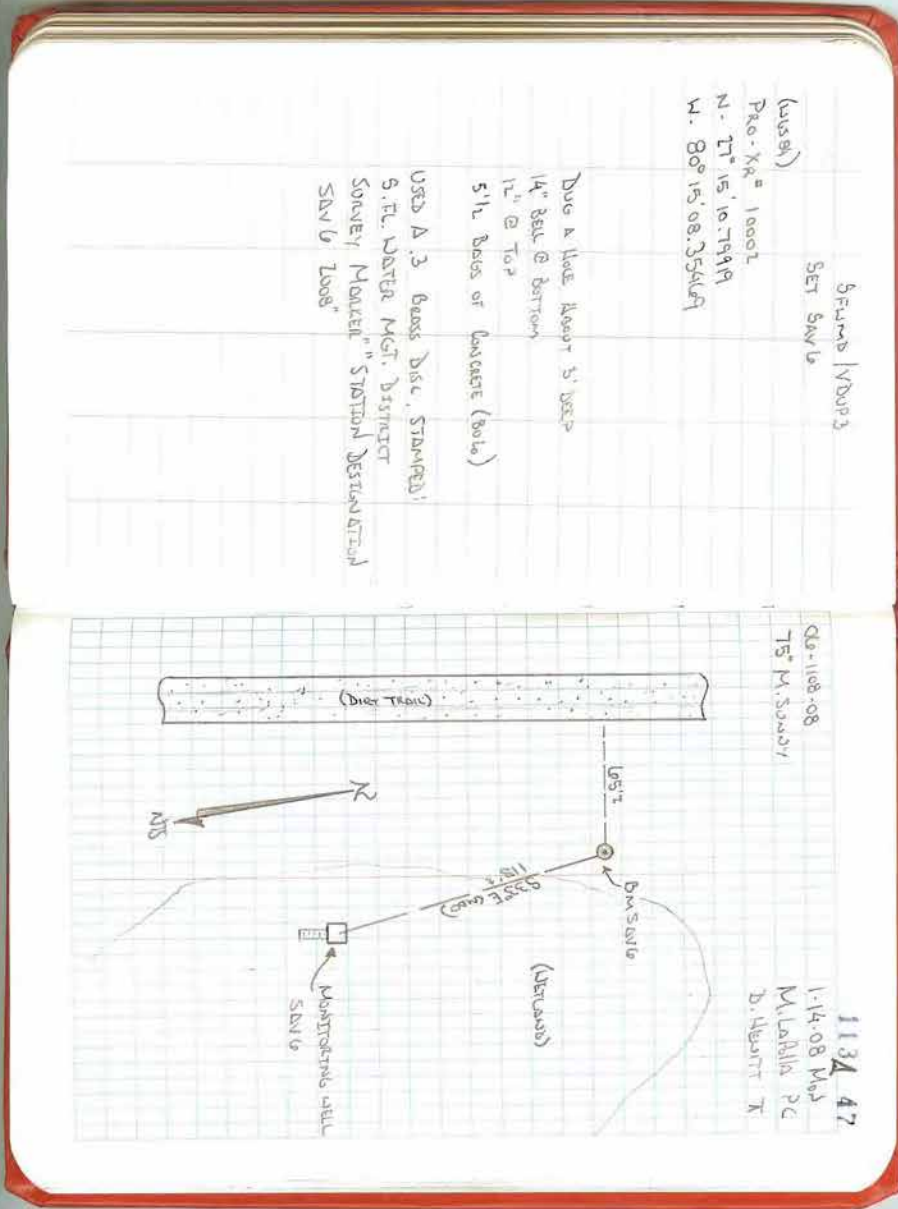 SFWMD / VDUP3
SET SAV6
(WGS84)
PRO-XR# 10002
N. 27° 15' 10.79919
W. 80° 15' 08.35469
DUG A HOLE ABOUT 3' DEEP
14" BELL @ BOTTOM
12" @ TOP
5 1/2 BAGS OF CONCRETE (80Lb)
USED A .3 BRASS DISC, STAMPED:
S.FL. WATER MGT. DISTRICT
SURVEY MARKER" "STATION DESIGNATION
SAV6 2008"
1134 47
06-1108-08
1-14-08 MON
75° M. SUNNY
M. LAPOLLA PC
D. HEWITT
(DIRT TRAIL)
65'±
BM SAV6
S35°E (MAG)
118'±
(WETLAND)
N
NTS
MONITORING WELL
SAV6